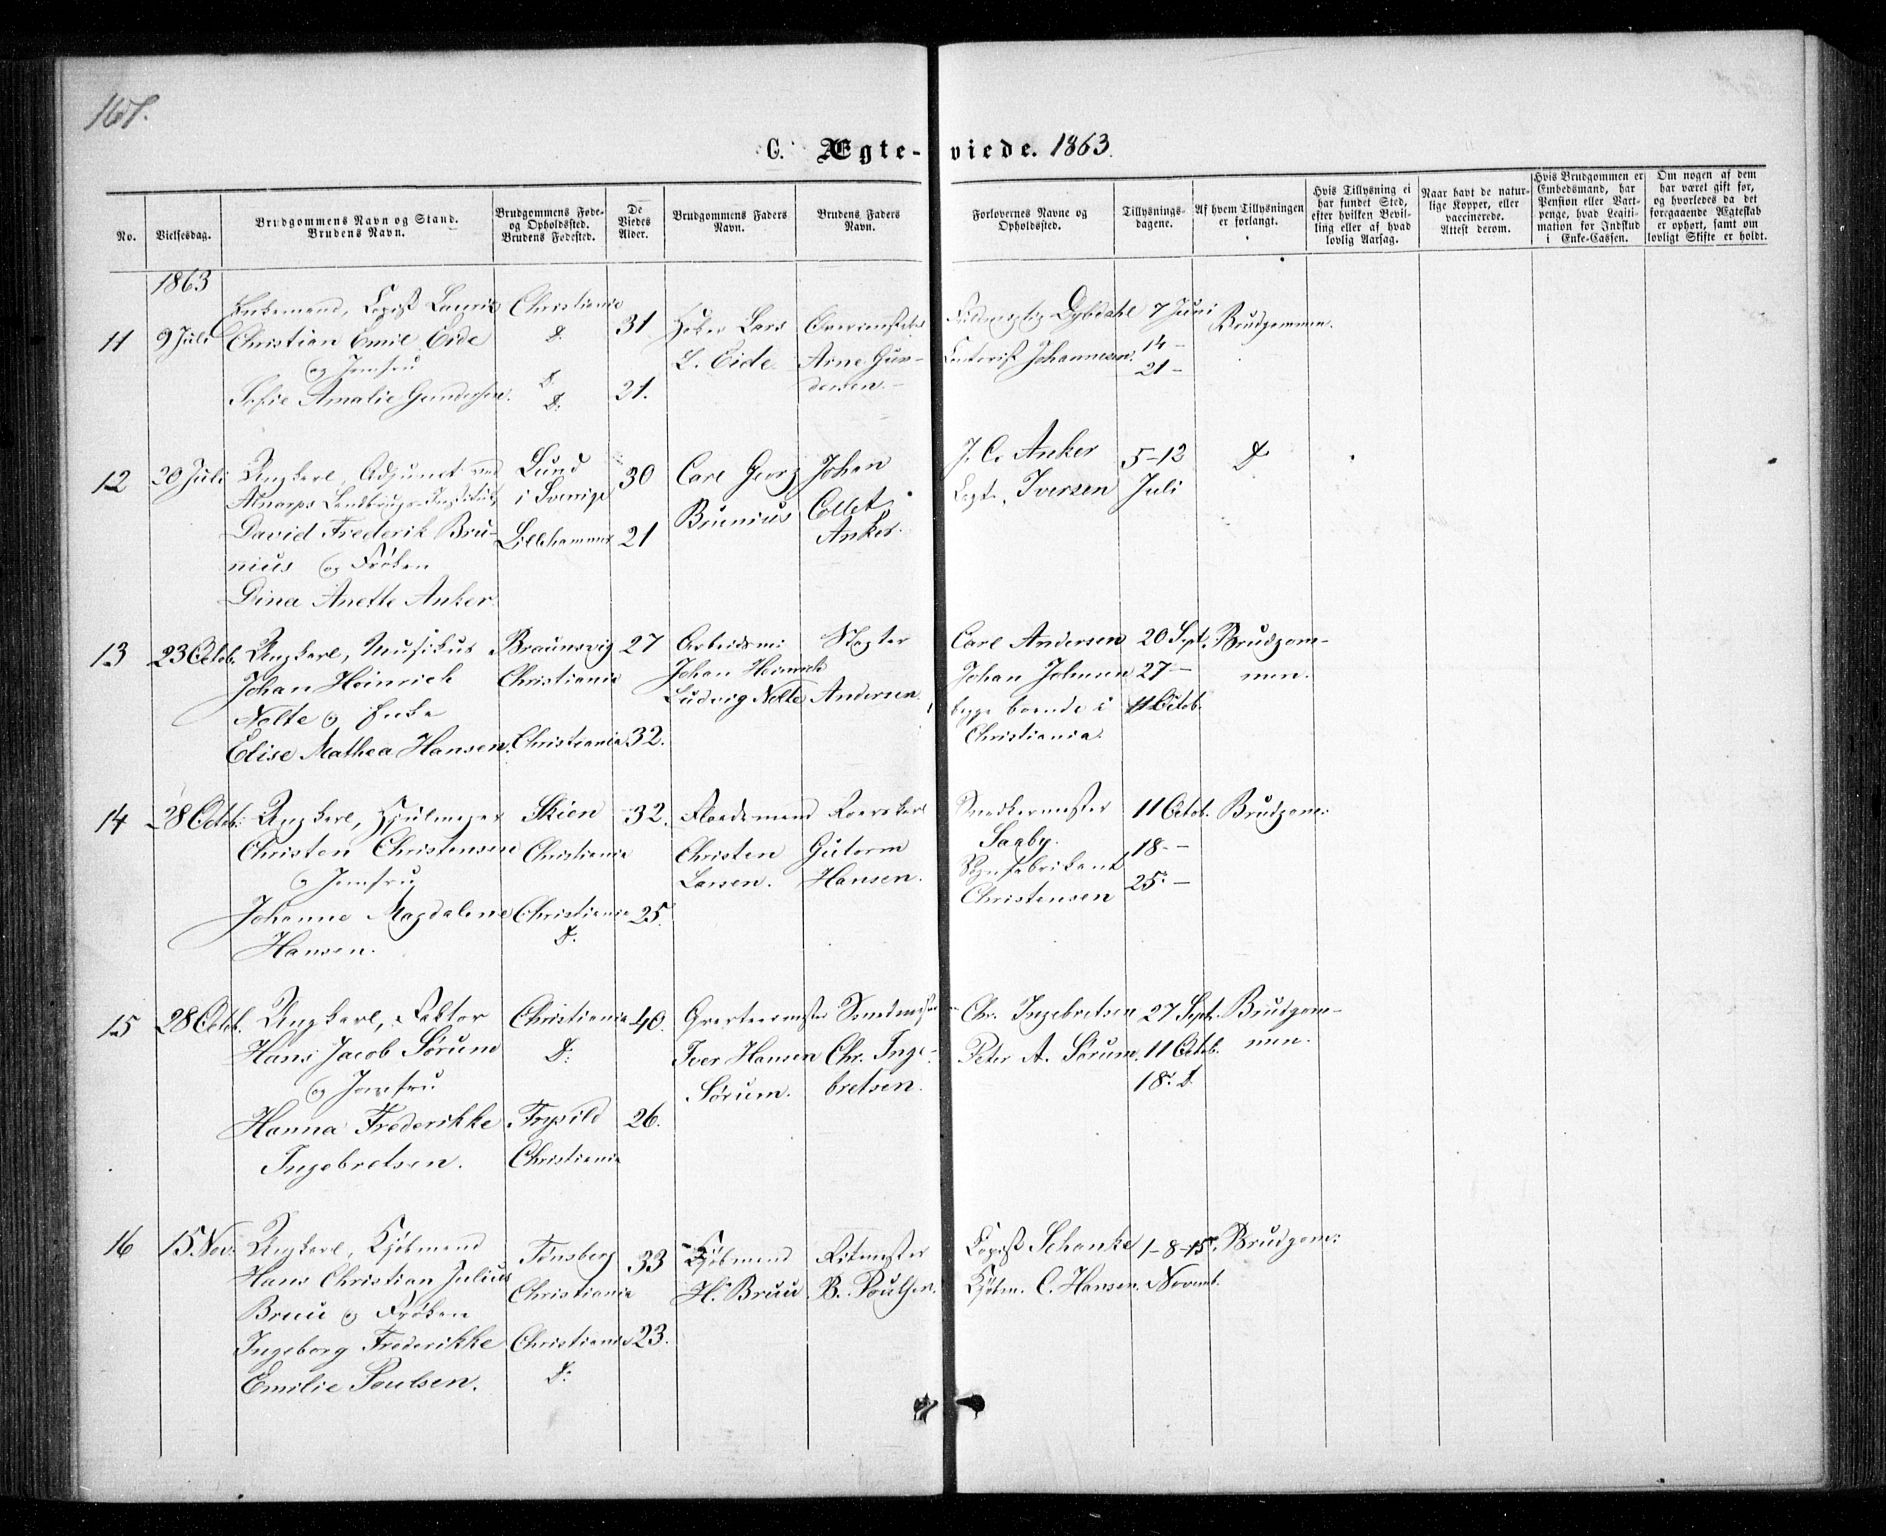 167.
C. Ægteviede. 1863.
No.
Vielsesdag.
Brudgommens Navn og Stand.
Brudens Navn.
Brudgommens Føde-
og Opholdssted.
Brudens Fødested.
De
Viedes
Alder.
Brudgommens Faders
Navn.
Brudens Faders
Navn.
Forlovernes Navne og
Opholdssted.
Tillysnings-
dagene.
Af hvem Tillysningen
er forlangt.
Hvis Tillysning ei
har fundet Sted,
efter hvilken Bevil-
ling eller af hvad
lovlig Aarsag.
Naar havt de natur-
lige Kopper, eller
vaccinerede.
Attest derom.
Hvis Brudgommen er
Embedsmand, har
Pension eller Vart-
penge, hvad Legiti-
mation for Indskud
i Enke-Cassen.
Om nogen af dem
har været gift før,
og hvorledes da det
foregaaende Ægteskab
er ophørt, samt om
lovligt Skifte er holdt.
1863
11
9 Juli
Enkemand, Kopist Lauritz
Christian Emil Eide
og Jomfru
Sofie Amalie Gundersen.
Christiania
D.
D.
D.
31
21.
Lars
L. Eide.
Arne Gun-
dersen.
Dybdahl
Kontorist Johannesen.
7 Juni
14 -
21 -
Brudgommen.
12
20 Juli
Ungkarl, Adjunct ved
Alnarps Landbrugs-Institut,
David Frederik Bru-
nius og Frøken
Dina Anette Anker
Lund
i Sverige
Lillehammer
30
21
Carl Georg
Brunius
Johan
Collet
Anker.
J. C. Anker
Iversen
5-12
Juli
D.
13
23 Octob.
Ungkarl, Musikus
Johan Heinrich
Nolte og Enke
Elise Mathea Hansen.
Braunsvig
Christiania
Christiania
27
32.
Arbeidsm:
Johan Heinrich
Ludvig Nolte
Slagter
Andersen.
Carl Andersen
Johan Johnsen
begge boende i
Christiania.
20 Sept.
27 -
11 Octob.
Brudgom-
men.
14
28 Octob:
Ungkarl, Hjulmager
Christen Christensen
og Jomfru
Johanne Magdalene
Hansen.
Skien
Christiania
Christiania
D.
32.
25.
Christen
Larsen.
Guttorm
Hansen.
Snedkermester
Saaby.
Vognfabrikant
Christensen
11 Octob.
18. -
25. -
Brudgom:
15
28 Octob.
Ungkarl, Faktor
Hans Jacob Sørum
og Jomfru
Hanna Frederikke
Ingebretsen.
Christiania
D:
Trysild
Christiania
40.
26.
Iver Hansen
Sørum.
Chr. Inge-
bretsen.
Chr. Ingebretsen
Peter A. Sørum.
27 Sept.
11 Octob.
18. D.
Brudgom-
men.
16
15 Nov:
Ungkarl, Kjøbmand
Hans Christian Julius
Bruu og Frøken
Ingeborg Frederikke
Emilie Poulsen.
Tønsberg
Christiania
Christiania
D:
33
23.
Kjøbmand
H. Bruu
Ritmester
B. Poulsen.
Kopist Schanke
Kjøbm. C. Hansen.
1-8-15.
Novemb.
Brudgom: